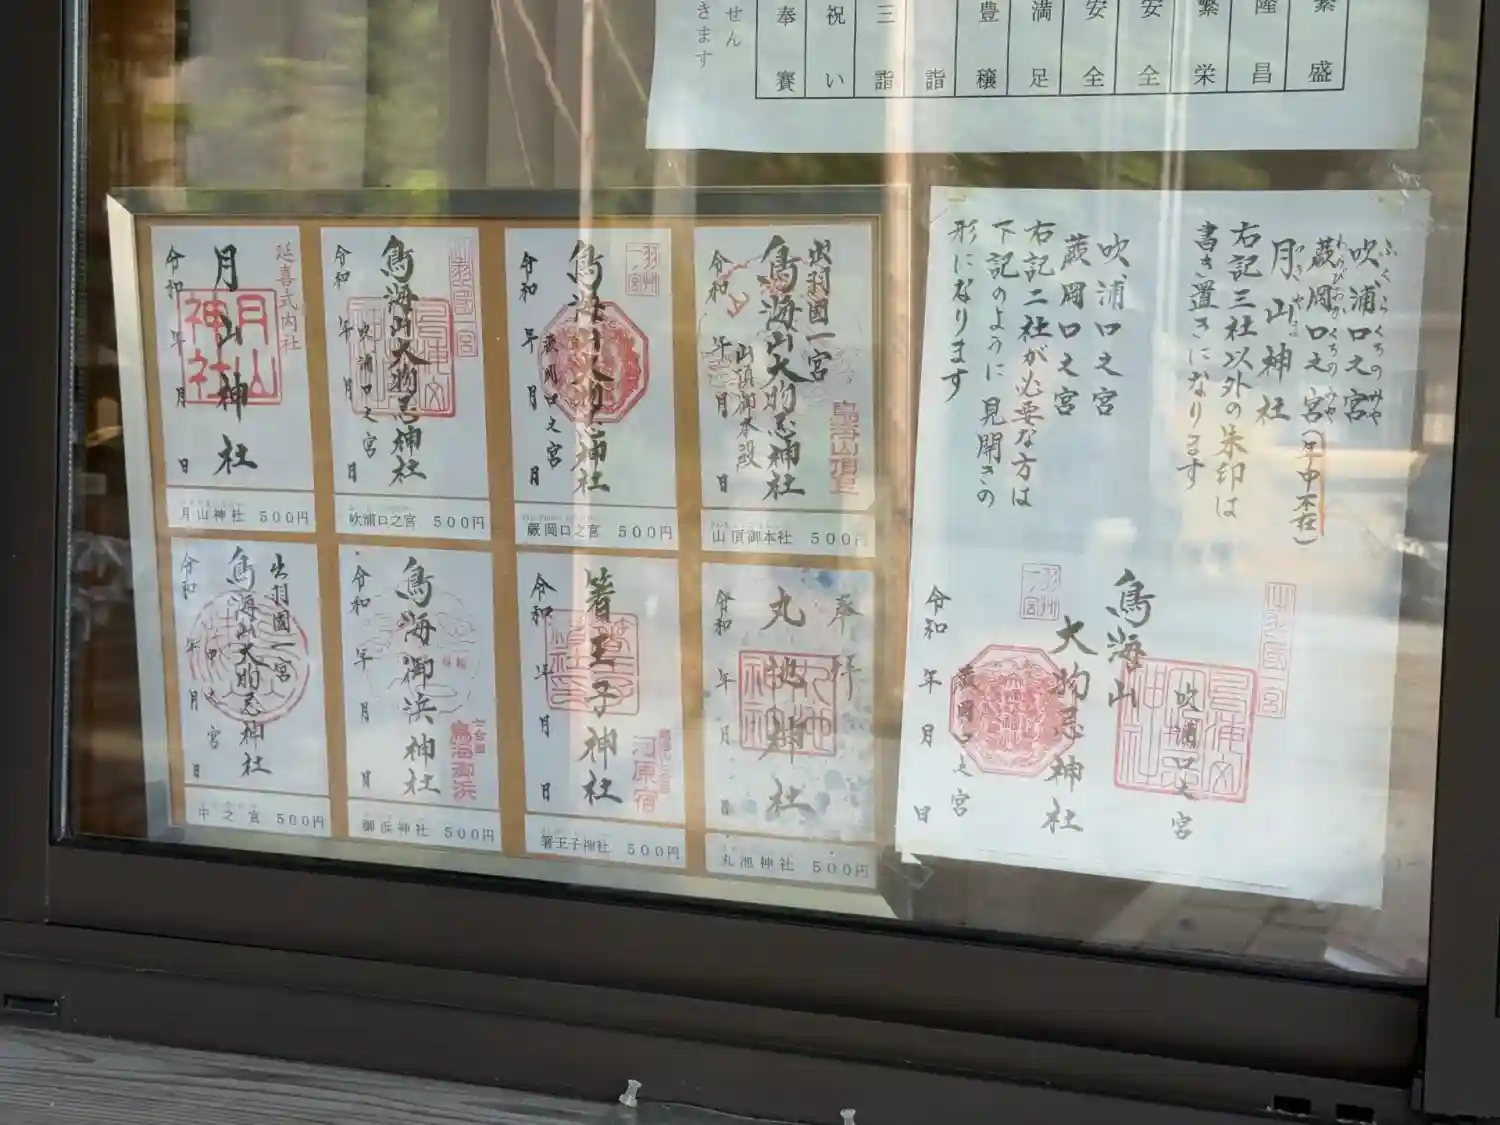 きます
せん
繁盛
隆昌
繁栄
安全
安全
満足
豊穣
詣
三詣
祝い
奉賽
延喜式内社
月山神社
月山神社
令和 年 月 日
月山神社 500円
鳥海山大物忌神社
吹浦口之宮
令和 年 月 日
吹浦口之宮 500円
羽州一宮
鳥海山大物忌神社
蕨岡口之宮
令和 年 月 日
蕨岡口之宮 500円
出羽國一宮
鳥海山大物忌神社
山頂御本殿
鳥海山頂
令和 年 月 日
山頂御本社 500円
出羽國一宮
鳥海山大物忌神社
中之宮
令和 年 月 日
中之宮 500円
鳥海御浜神社
七合目
鳥海御浜
令和 年 月 日
御浜神社 500円
箸王子神社
河原宿
令和 年 月 日
箸王子神社 500円
奉拝
丸池神社
令和 年 月 日
丸池神社 500円
吹浦口之宮
ふくらくちのみや
蕨岡口之宮(日中不在)
わらびおかくちのみや
月山神社
右記三社以外の朱印は
書き置きになります
吹浦口之宮
蕨岡口之宮
右記二社が必要な方は
下記のように見開きの
形になります
鳥海山
大物忌神社
吹浦口之宮
羽州一宮
蕨岡口之宮
令和 年 月 日